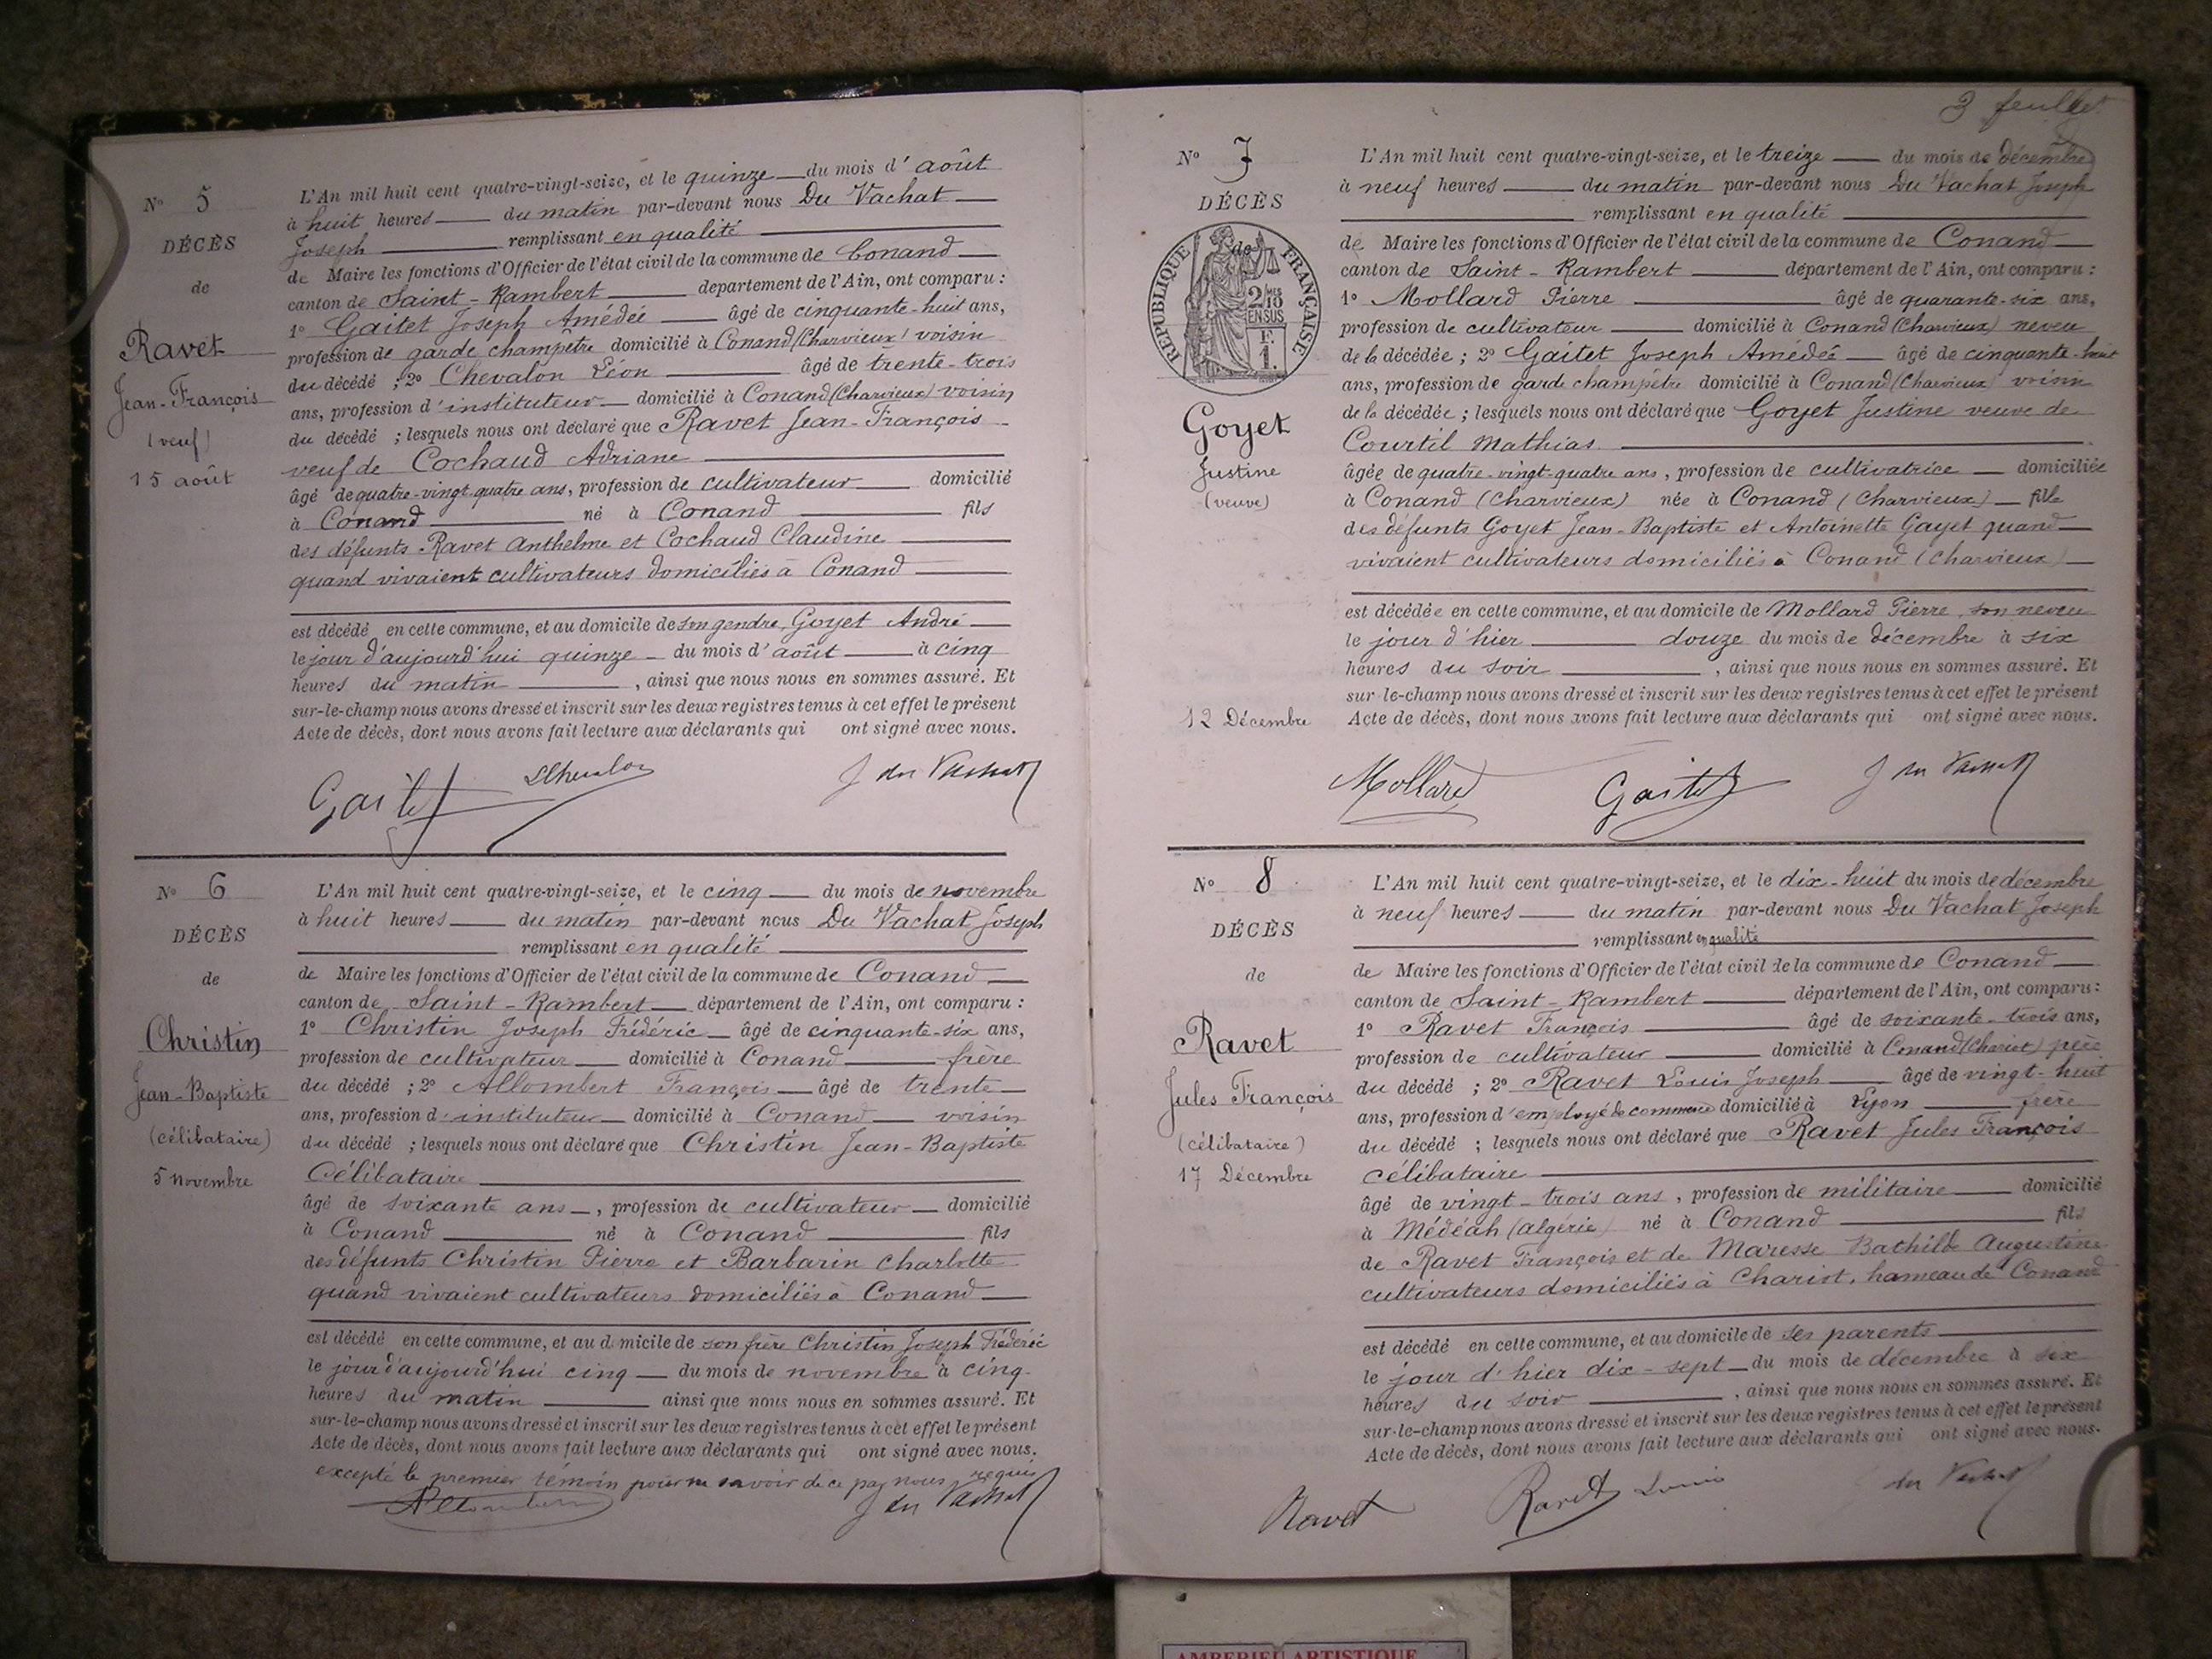 N° 5
DÉCÈS
de
Ravet
Jean-François
(veuf)
15 août
L'An mil huit cent quatre-vingt-seize, et le quinze du mois d'août
à huit heures du matin par-devant nous Du Vachat
Joseph remplissant en qualité
de Maire les fonctions d'Officier de l'état civil de la commune de Conand
canton de Saint-Rambert département de l'Ain, ont comparu :
1° Gaitet Joseph Amédée âgé de cinquante-huit ans,
profession de garde champêtre domicilié à Conand (Charvieux) voisin
du décédé ; 2° Chevalon Léon âgé de trente-trois
ans, profession d'instituteur domicilié à Conand (Charvieux) voisin
du décédé ; lesquels nous ont déclaré que Ravet Jean-François
veuf de Cochaud Adriane
âgé de quatre-vingt quatre ans, profession de cultivateur domicilié
à Conand né à Conand fils
des défunts Ravet Anthelme et Cochaud Claudine
quand vivaient cultivateurs domiciliés à Conand
est décédé en cette commune, et au domicile de son gendre, Goyet André
le jour d'aujourd'hui quinze du mois d'août à cinq
heures du matin , ainsi que nous nous en sommes assuré. Et
sur-le-champ nous avons dressé et inscrit sur les deux registres tenus à cet effet le présent
Acte de décès, dont nous avons fait lecture aux déclarants qui ont signé avec nous.
Gaitet LChevalon J du Vachat
N° 6
DÉCÈS
de
Christin
Jean-Baptiste
(célibataire)
5 novembre
L'An mil huit cent quatre-vingt-seize, et le cinq du mois de novembre
à huit heures du matin par-devant nous Du Vachat Joseph
remplissant en qualité
de Maire les fonctions d'Officier de l'état civil de la commune de Conand
canton de Saint-Rambert département de l'Ain, ont comparu :
1° Christin Joseph Frédéric âgé de cinquante-six ans,
profession de cultivateur domicilié à Conand frère
du décédé ; 2° Allombert François âgé de trente
ans, profession d'instituteur domicilié à Conand voisin
du décédé ; lesquels nous ont déclaré que Christin Jean-Baptiste
Célibataire
âgé de soixante ans , profession de cultivateur domicilié
à Conand né à Conand fils
des défunts Christin Pierre et Barbarin Charlotte
quand vivaient cultivateurs domiciliés à Conand
est décédé en cette commune, et au domicile de son frère Christin Joseph Frédéric
le jour d'aujourd'hui cinq du mois de novembre à cinq
heures du matin ainsi que nous nous en sommes assuré. Et
sur-le-champ nous avons dressé et inscrit sur les deux registres tenus à cet effet le présent
Acte de décès, dont nous avons fait lecture aux déclarants qui ont signé avec nous.
excepté le premier témoin pour ne savoir de ce par nous requis
Allombert J du Vachat
3 feuillet
N° 7
DÉCÈS
de
RÉPUBLIQUE FRANÇAISE
2/10 MES
EN SUS
1 F.
Goyet
Justine
(veuve)
12 Décembre
L'An mil huit cent quatre-vingt-seize, et le treize du mois de décembre
à neuf heures du matin par-devant nous Du Vachat Joseph
remplissant en qualité
de Maire les fonctions d'Officier de l'état civil de la commune de Conand
canton de Saint-Rambert département de l'Ain, ont comparu :
1° Mollard Pierre âgé de quarante-six ans,
profession de cultivateur domicilié à Conand (Charvieux) neveu
de la décédée ; 2° Gaitet Joseph Amédée âgé de cinquante-huit
ans, profession de garde champêtre domicilié à Conand (Charvieux) voisin
de la décédée ; lesquels nous ont déclaré que Goyet Justine veuve de
Courtil Mathias
âgée de quatre-vingt-quatre ans, profession de cultivatrice domiciliée
à Conand (Charvieux) née à Conand (Charvieux) fille
des défunts Goyet Jean-Baptiste et Antoinette Gayet quand
vivaient cultivateurs domiciliés à Conand (Charvieux)
est décédée en cette commune, et au domicile de Mollard Pierre, son neveu
le jour d'hier douze du mois de décembre à six
heures du soir , ainsi que nous nous en sommes assuré. Et
sur-le-champ nous avons dressé et inscrit sur les deux registres tenus à cet effet le présent
Acte de décès, dont nous avons fait lecture aux déclarants qui ont signé avec nous.
Mollard Gaitet J du Vachat
N° 8
DÉCÈS
de
Ravet
Jules François
(célibataire)
17 Décembre
L'An mil huit cent quatre-vingt-seize, et le dix-huit du mois de décembre
à neuf heures du matin par-devant nous Du Vachat Joseph
remplissant en qualité
de Maire les fonctions d'Officier de l'état civil de la commune de Conand
canton de Saint-Rambert département de l'Ain, ont comparu :
1° Ravet François âgé de soixante-trois ans,
profession de cultivateur domicilié à Conand (Chariot) père
du décédé ; 2° Ravet Louis Joseph âgé de vingt-huit
ans, profession d'employé de commerce domicilié à Lyon frère
du décédé ; lesquels nous ont déclaré que Ravet Jules François
célibataire
âgé de vingt-trois ans, profession de militaire domicilié
à Médéah (algérie) né à Conand fils
de Ravet François et de Maresse Bathilde Augustine
cultivateurs domiciliés à Chariot, hameau de Conand
est décédé en cette commune, et au domicile de ses parents
le jour d'hier dix-sept du mois de décembre à six
heures du soir , ainsi que nous nous en sommes assuré. Et
sur-le-champ nous avons dressé et inscrit sur les deux registres tenus à cet effet le présent
Acte de décès, dont nous avons fait lecture aux déclarants qui ont signé avec nous.
Ravet Ravet Louis J du Vachat
AMBERIEU ARTISTIQUE